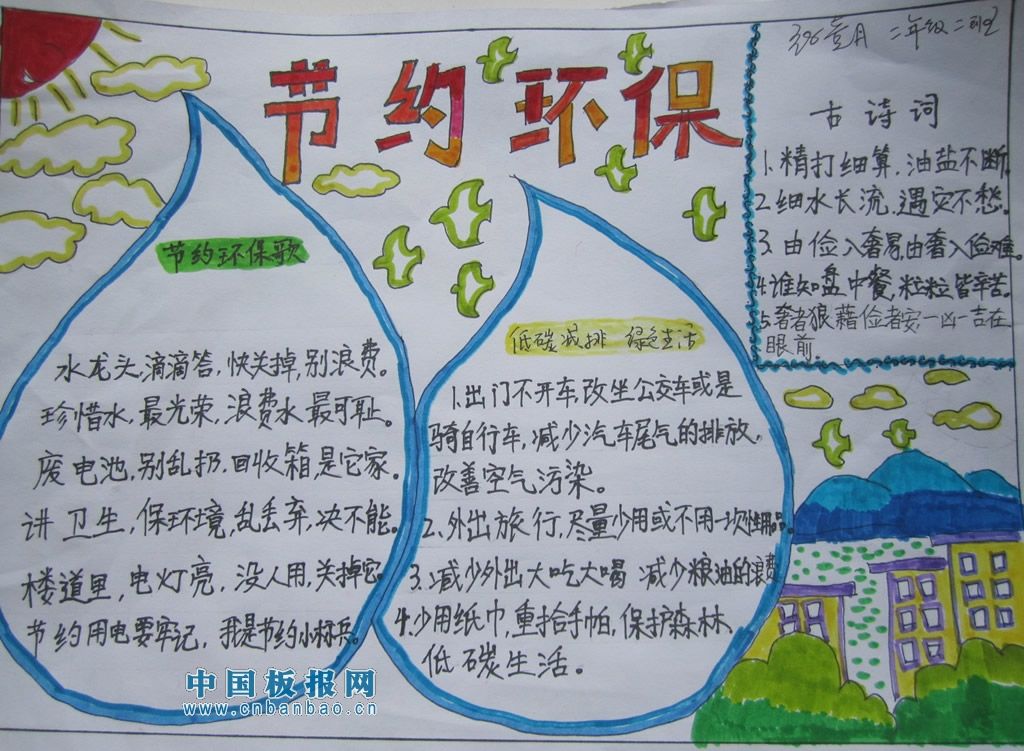 节约环保
二年级二班
节约环保歌
水龙头,滴滴答,快关掉,别浪费。
珍惜水,最光荣,浪费水,最可耻。
废电池,别乱扔,回收箱是它家。
讲卫生,保环境,乱丢弃,决不能。
楼道里,电灯亮,没人用,关掉它。
节约用电要牢记,我是节约小标兵。
低碳减排 绿色生活
1.出门不开车,改坐公交车或是
骑自行车,减少汽车尾气的排放,
改善空气污染。
2.外出旅行,尽量少用或不用一次性用品。
3.减少外出大吃大喝 减少粮油的浪费
4.少用纸巾,重拾手帕,保护森林,
低碳生活。
古诗词
1.精打细算,油盐不断。
2.细水长流,遇灾不愁。
3.由俭入奢易,由奢入俭难。
4.谁知盘中餐,粒粒皆辛苦。
5.奢者狼藉俭者安,一凶一吉在
眼前.
中国板报网
www.cnbanbao.cn